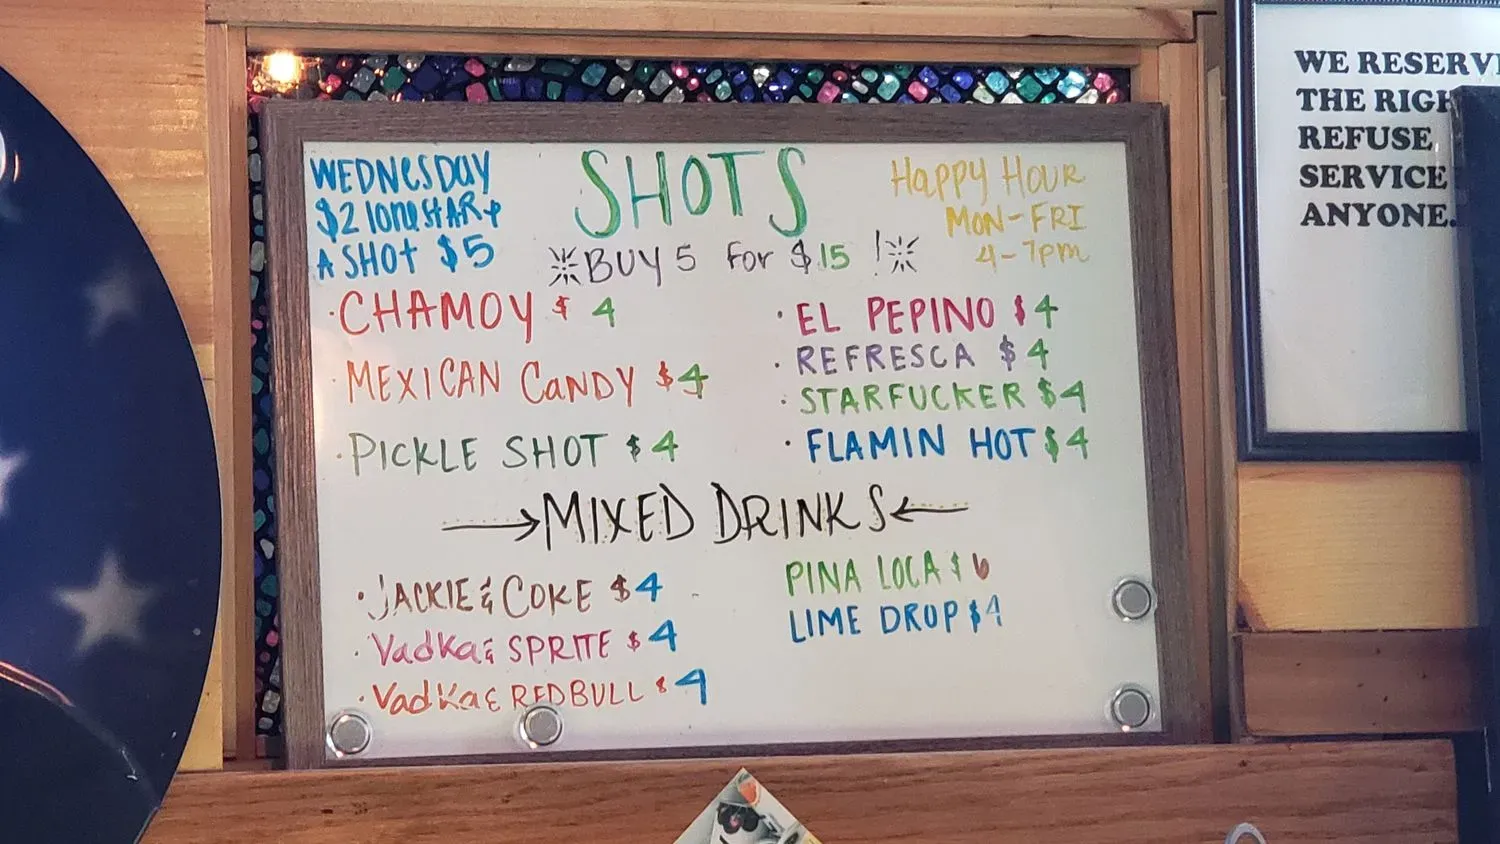 WEDNESDAY
$2 lONESTAR +
A SHOT $5
SHOTS
BUY 5 For $15 !
HaPPy HOUR
MON-FRI
4-7pm
· CHAMOY $ 4
· MEXICAN CaNDY $4
· PICKLE SHOT $4
· EL PEPINO $4
· REFRESCA $4
· STARFUCKER $4
· FLAMIN HOT $4
→MIXED DRINKS←
· JACKIE & COKE $4
· VadKa & SPRITE $4
· VadKa & REDBULL $4
PINA LOCA $6
LIME DROP $4
WE RESERV
THE RIGH
REFUSE
SERVICE
ANYONE.